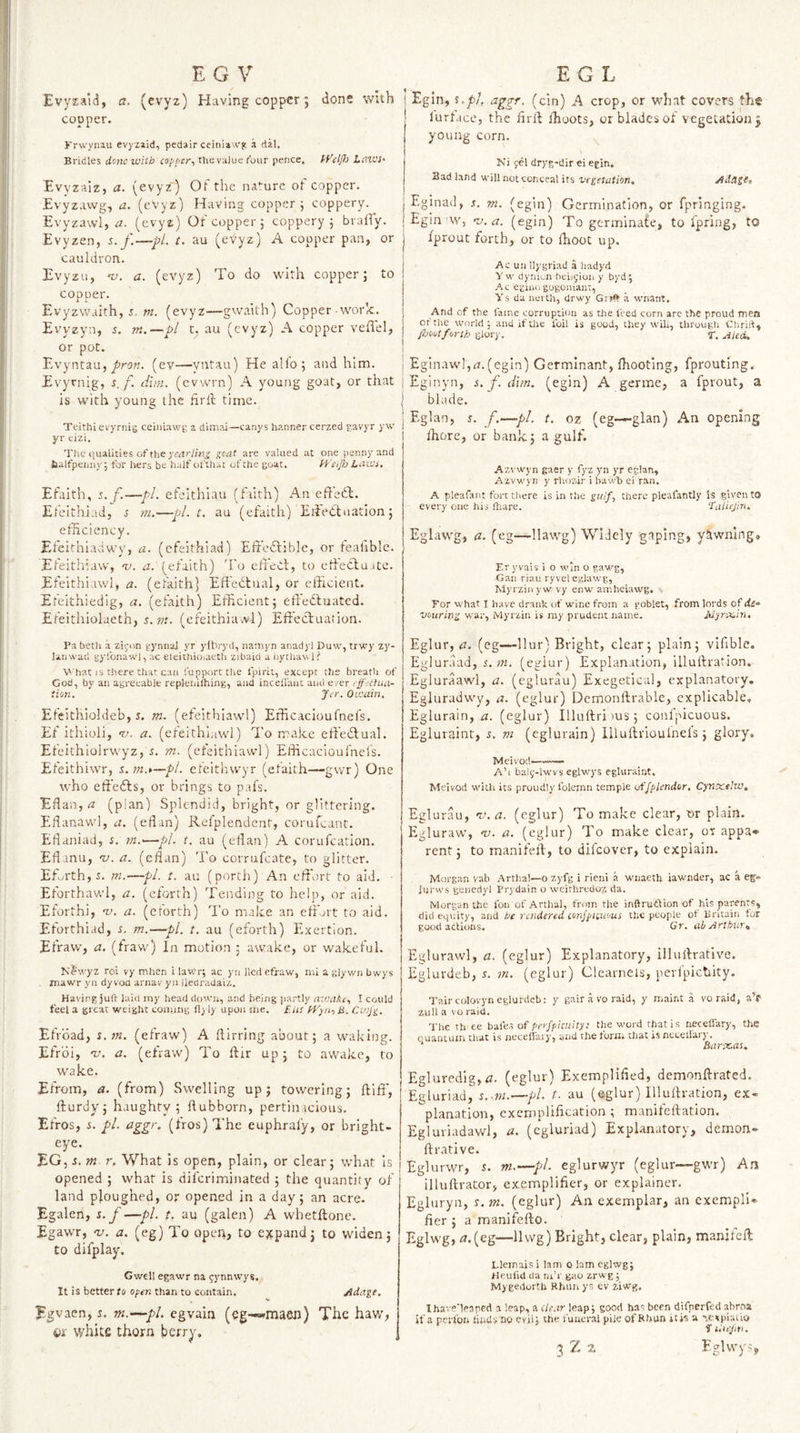 E G V
Evyzaid, a. (evyz) Having copper; done with
copper.
Frwynau evyzaid, pedair ceiniawg â dâl.
Bridles done with copper, the value four pence. Welſh Laws.
Evyzaiz, a. (evyz) Of the nature of copper.
Evyzawg, a. (evyz) Having copper; coppery.
Evyzawl, a. (evyz) Of copper; coppery; braſſy.
Evyzen, s. f.—pl. t. au (evyz) A copper pan, or
cauldron.
Evyzu, v. a. (evyz) To do with copper; to
copper.
Evyzwaith, s. m. (evyz—gwaith) Copper-work.
Evyzyn, s. m.—pl t. au (evyz) A copper veſſel,
or pot.
Evyntau, pron. (ev—yntau) He alſo; and him.
Evyrnig, s. f. dim. (evwrn) A young goat, or that
is with young the firſt time.
Teithi evyrnig ceiniawg a dimai—canys hanner cerzed gavyr yw
yr eizi.
The qualities of the yearling goat are valued at one penny and
halfpenny; for hers be half of that of the goat. Welſh Laws.
Efaith, s. f.—pl. efeithiau (faith) An effect.
Efeithiad, s m.—pl. t. au (efaith) Effectuation;
efficiency.
Efeithiadwy, a. (efeithiad) Effectible, or feaſible.
Efeithiaw, v. a. (efaith) To effect, to effectuate.
Efeithiawl, a. (efaith) Effectual, or efficient.
Efeithiedig, a. (efaith) Efficient; effectuated.
Efeithiolaeth, s. m. (efeithiawl) Effectuation.
Pa beth a ziçon gynnal yr yſbryd, namyn anadyl Duw, trwy zy-
lanwad gyſonawl, ac eſeithiolaeth zibaid a bythawl?
What is there that can ſupport the ſpirit, except the breath of
God, by an agreeable repleniſhing, and inceſſant and ever effectua-
tion. Jer. Owain.
Efeithioldeb, s. m. (efeithiawl) Efficaciouſneſs.
Efeithioli, v. a. (efeithiawl) To make effectual.
Efeithiolrwyz, s. m. (efeithiawl) Efficaciouſneſs.
Efeithiwr, s. m.—pl. efeithwyr (efaith—gwr) One
who effects, or brings to paſs.
Eflan, a (plan) Splendid, bright, or glittering.
Eflanawl, a. (eflan) Reſplendent, coruſcant.
Eflaniad, s. m.—pl. t. au (eflan) A coruſcation.
Eflanu, v. a. (eflan) To corruſcate, to glitter.
Eforth, s. m.—pl. t. au (porth) An effort to aid.
Eforthawl, a. (eforth) Tending to help, or aid.
Eforthi, v. a. (eforth) To make an effort to aid.
Eforthiad, s. m.—pl. t. au (eforth) Exertion.
Efraw, a. (fraw) In motion; awake, or wakeful.
Newyz roi vy mhen i lawr; ac yn lled efraw, mi a glywn bwys
mawr yn dyvod arnav yn lledradaiz.
Having juſt laid my head down, and being partly awake, I could
feel a great weight coming ſlyly upon me. Elis Wyn, B. Cwſg.
Efröad, s. m. (efraw) A ſtirring about; a waking.
Efröi, v. a. (efraw) To ſtir up; to awake, to
wake.
Efrom, a. (from) Swelling up; towering; ſtiff,
ſturdy; haughty; ſtubborn, pertinacious.
Efros, s. pl. aggr. (fros) The euphraſy, or bright-
eye.
EG, s. m r. What is open, plain, or clear; what is
opened; what is diſcriminated; the quantity of
land ploughed, or opened in a day; an acre.
Egalen, s. f—pl. t. au (galen) A whetſtone.
Egawr, v. a. (eg) To open, to expand; to widen;
to diſplay.
Gwell egawr na çynnwys.
It is better to open than to contain. Adage.
Egvaen, s. m.—pl. egvain (eg—maen) The haw,
or white thorn berry.
E G L
Egin, s. pl. aggr. (cin) A crop, or what covers the
ſurface, the firſt ſhoots, or blades of vegetation;
young corn.
Ni çêl dryg-dir ei egin.
Bad land will not conceal its vegetation. Adage.
Eginad, s. m. (egin) Germination, or ſpringing.
Eginaw, v. a. (egin) To germinate, to ſpring, to
ſprout forth, or to ſhoot up.
Ac un llygriad â hadyd
Yw dynion beilçion y byd;
Ac egino gogoniant,
Ys da neith, drwy Griſt â wnant.
And of the ſame corruption as the ſeed corn are the proud men
of the world; and if the ſoil is good, they will, through Chriſt,
ſhoot forth glory. T. Aled.
Eginawl, a. (egin) Germinant, ſhooting, ſprouting.
Eginyn, s. f. dim. (egin) A germe, a ſprout, a
blade.
Eglan, s. f.—pl. t. oz (eg—glan) An opening
ſhore, or bank; a gulf.
Azvwyn gaer y ſyz yn yr eglan,
Azvwyn y rhozir i bawb ei ran.
A pleaſant fort there is in the gulf, there pleaſantly is given to
every one his ſhare. Talieſin.
Eglawg, a. (eg—llawg) Widely gaping, yawning.
Er yvais i o win o gawg,
Gan riau ryvel eglawg,
Myrzin yw vy enw amheiawg.
For what I have drank of wine from a goblet, from lords of de-
vouring war, Myrzin is my prudent name. Myrzin.
Eglur, a. (eg—llur) Bright, clear; plain; viſible.
Egluraad, s. m. (eglur) Explanation, illuſtration.
Eglurâawl, a. (eglurâu) Exegetical, explanatory.
Egluradwy, a. (eglur) Demonſtrable, explicable.
Eglurain, a. (eglur) Illuſtrious; conſpicuous.
Egluraint, s. m (eglurain) Illuſtriouſneſs; glory.
Meivod———
A'i balç-lwvs eglwys egluraint.
Meivod with its proudly ſolemn temple of ſplendor. Cynzelw.
Eglurâu, v. a. (eglur) To make clear, or plain.
Egluraw, v. a. (eglur) To make clear, or appa-
rent; to manifeſt, to diſcover, to explain.
Morgan vab Arthal—o zyſg i rieni â wnaeth iawnder, ac a eg-
lurws genedyl Prydain o weithredoz da.
Morgan the ſon of Arthal, from the inſtruction of his parents,
did equity, and be rendered conſpicuous the people of Britain for
good actions. Gr. ab Arthur.
Eglurawl, a. (eglur) Explanatory, illuſtrative.
Eglurdeb, s. m. (eglur) Clearneſs, perſpicuity.
Tair colovyn eglurdeb: y gair â vo raid, y maint â vo raid, a'r
zull a vo raid.
The three baſes of perſpicuity: the word that is neceſſary, the
quantum that is neceſſary, and the form that is neceſſary.
Barzas.
Egluredig, a. (eglur) Exemplified, demonſtrated.
Egluriad, s. m.—pl. t. au (eglur) Illuſtration, ex-
planation, exemplification; manifeſtation.
Egluriadawl, a. (egluriad) Explanatory, demon-
ſtrative.
Eglurwr, s. m.—pl. eglurwyr (eglur—gwr) An
illuſtrator, exemplifier, or explainer.
Egluryn, s. m. (eglur) An exemplar, an exempli-
fier; a manifeſto.
Eglwg, a. (eg—llwg) Bright, clear, plain, manifeſt
Llemais i lam o lam eglwg;
Heuſid da ni'r gao zrwg;
Mygedorth Rhun ys ev ziwg.
I have leaped a leap, a clear leap; good has been diſperſed abroa
if a perſon finds no evil; the funeral pile of Rhun it is a
Talieſin.
3 Z 2 Eglwys,